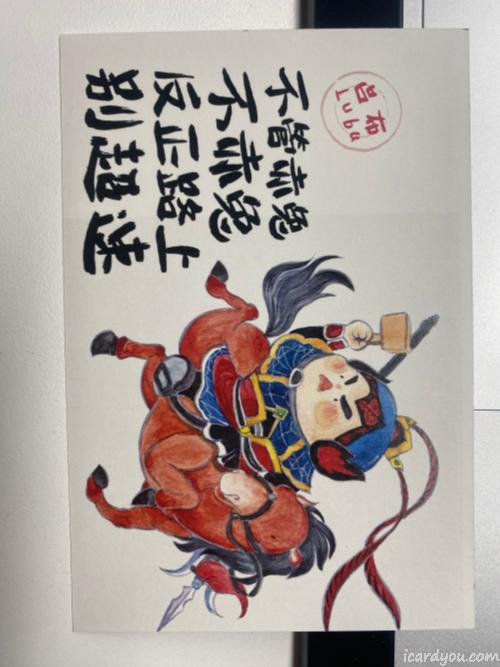 吕布
Lu bu
不管赤兔
不赤兔
反正路上
别超速
icardyou.com